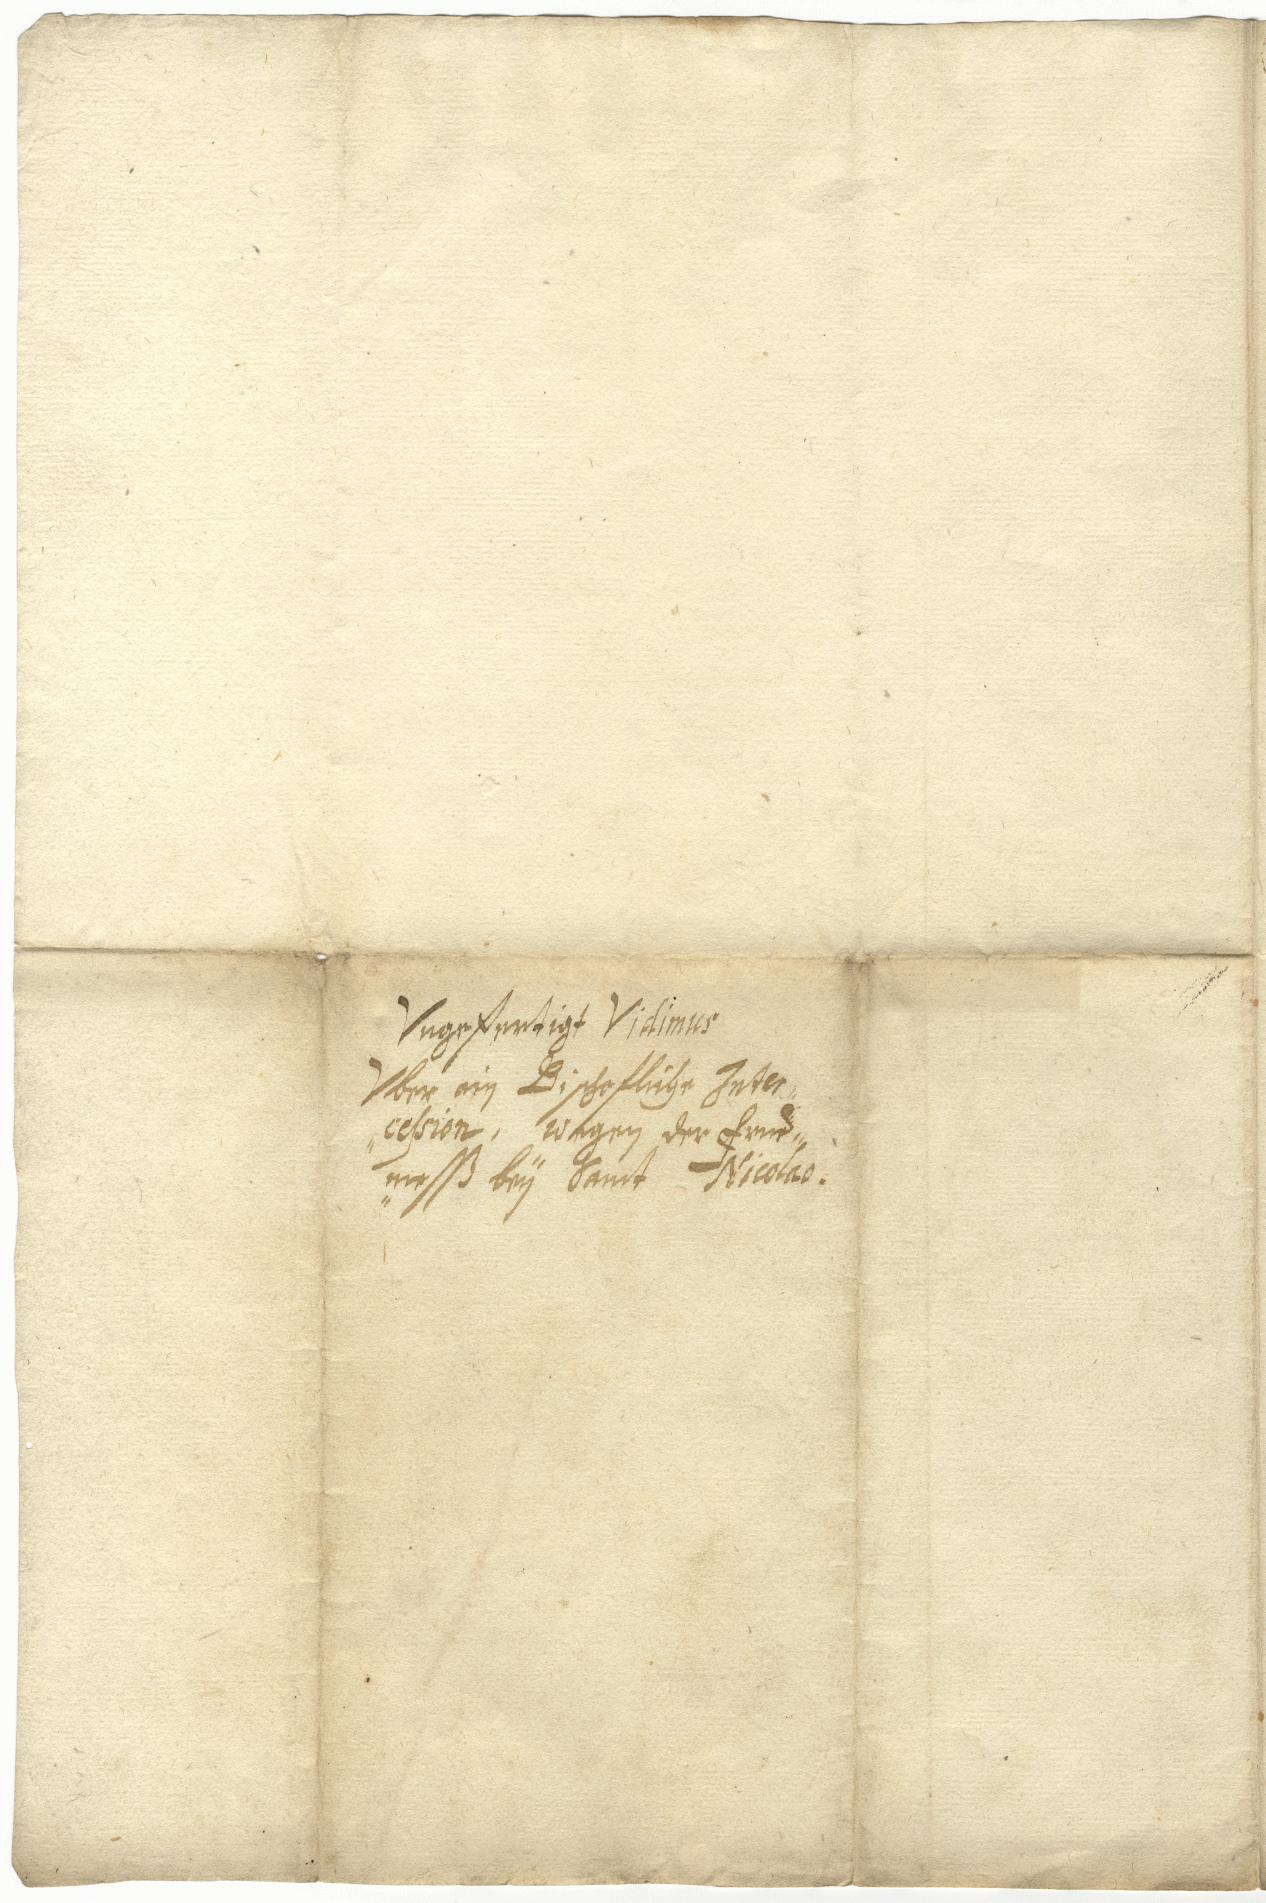 Vngefertigt Vidimus
Vber ein Bischofliche Inter„
„cession, wegen der Frue„
„mess bey Sanct Nicolao.